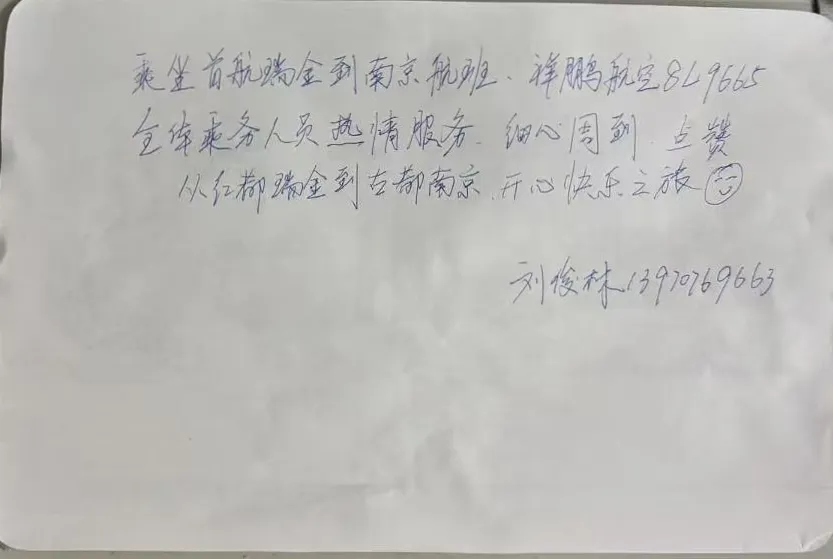 乘坐首航瑞金到南京航班、祥鹏航空8L9665
全体乘务人员热情服务、细心周到、点赞
从红都瑞金到古都南京、开心快乐之旅
刘俊林13970769663